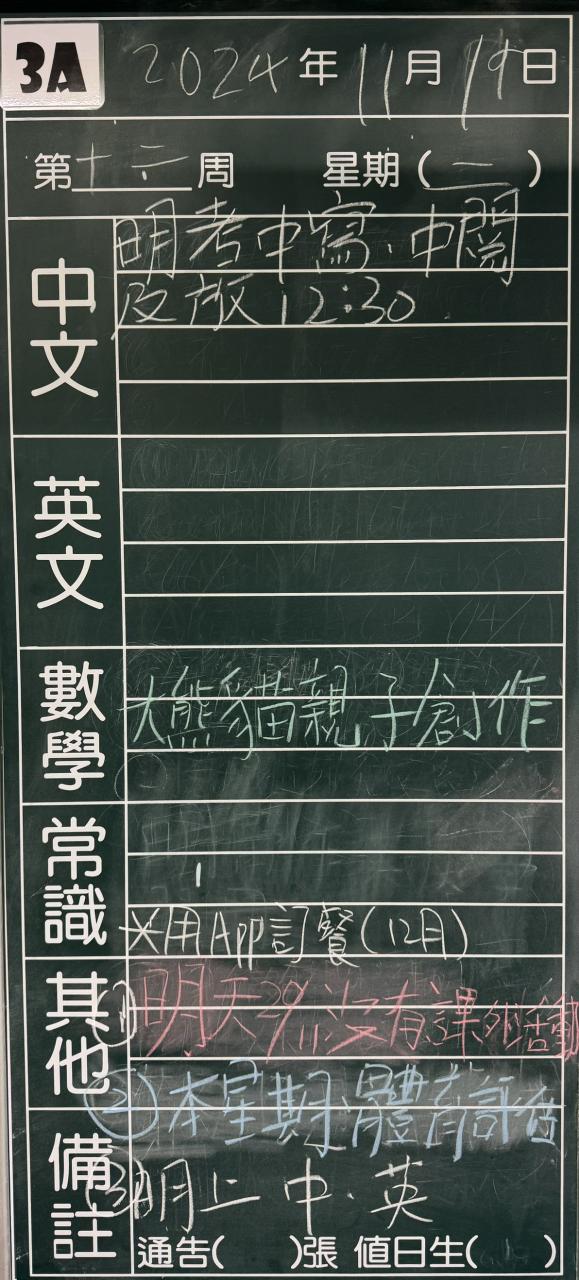 3A
2024年11月19日
第十二周 星期(二)
中文
明考中寫、中閱
及放12:30
英文
數學
大熊貓親子創作
常識
*用App訂餐(12月)
其他
①明天20/11沒有課外活動
②本星期體育評估
備註
③明上中、英
通告( )張 值日生( )